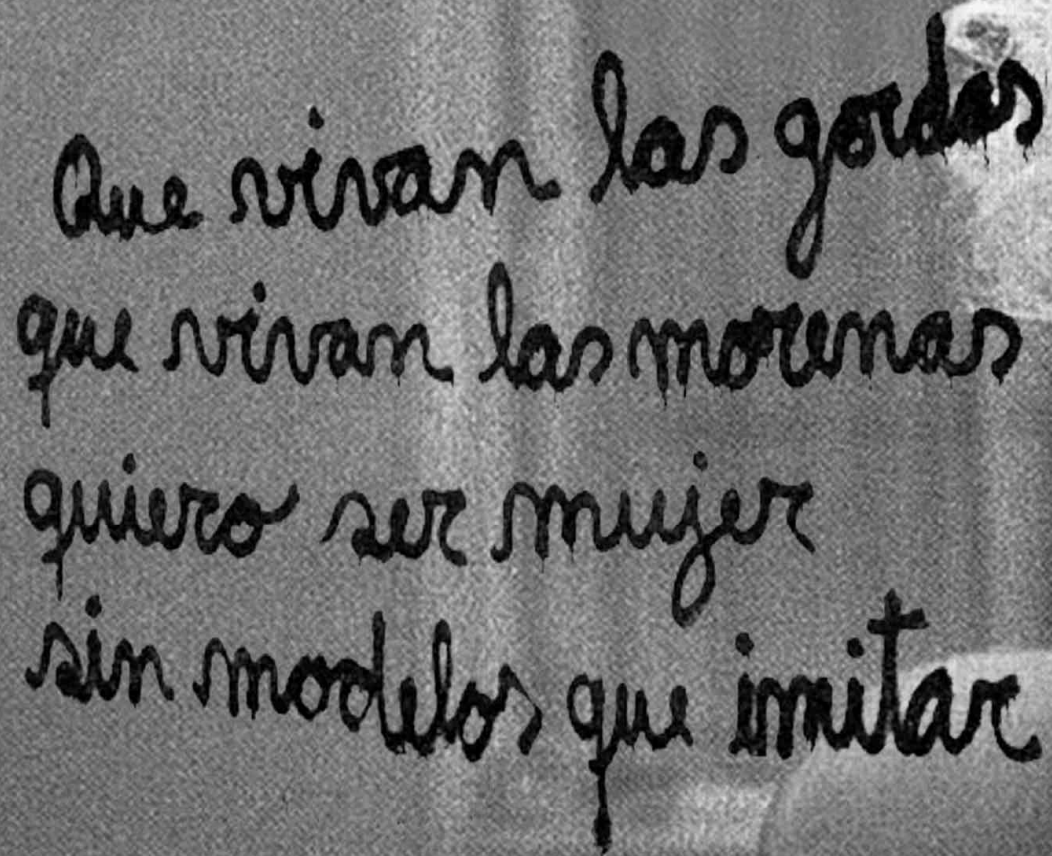 Que vivan las gordas
que vivan las morenas
quiero ser mujer
sin modelos que imitar